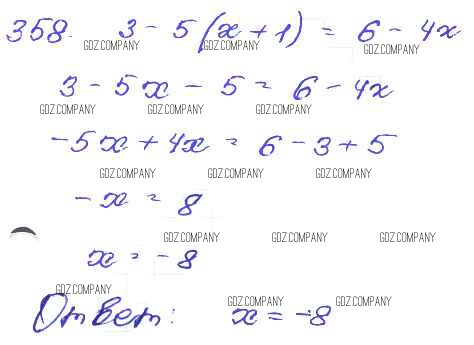 358. 3 - 5(x + 1) = 6 - 4x
GDZ.COMPANY GDZ.COMPANY GDZ.COMPANY
3 - 5x - 5 = 6 - 4x
GDZ.COMPANY GDZ.COMPANY GDZ.COMPANY
-5x + 4x = 6 - 3 + 5
GDZ.COMPANY GDZ.COMPANY GDZ.COMPANY
-x = 8
GDZ.COMPANY GDZ.COMPANY GDZ.COMPANY
x = -8
GDZ.COMPANY GDZ.COMPANY GDZ.COMPANY
Ответ: x = -8